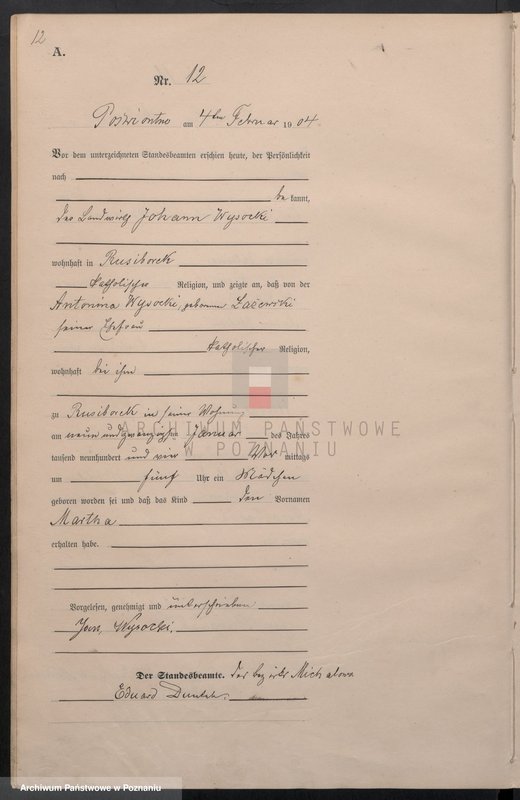 12
A.
Nr. 12
am 4ten Februar 1904
Vor dem unterzeichneten Standesbeamten erschien heute, der Persönlichkeit
nach
be kannt,
der Landwirth Johann Wysocki
wohnhaft in Rusiborek
katholischer Religion, und zeigte an, daß von der
Antonina Wysocki, geborenen Lazewski
seiner Ehefrau
katholischer Religion,
wohnhaft bei ihm
zu Rusiborek in seiner Wohnung
am neun und zwanzigsten Januar des Jahres
tausend neunhundert und vier Vor mittags
um fünf Uhr ein Mädchen
geboren worden sei und daß das Kind den Vornamen
Martha
erhalten habe.
Vorgelesen, genehmigt und unterschrieben
Jan Wysocki.
Der Standesbeamte.
Eduard
ARCHIWUM PAŃSTWOWE
W POZNANIU
Archiwum Państwowe w Poznaniu